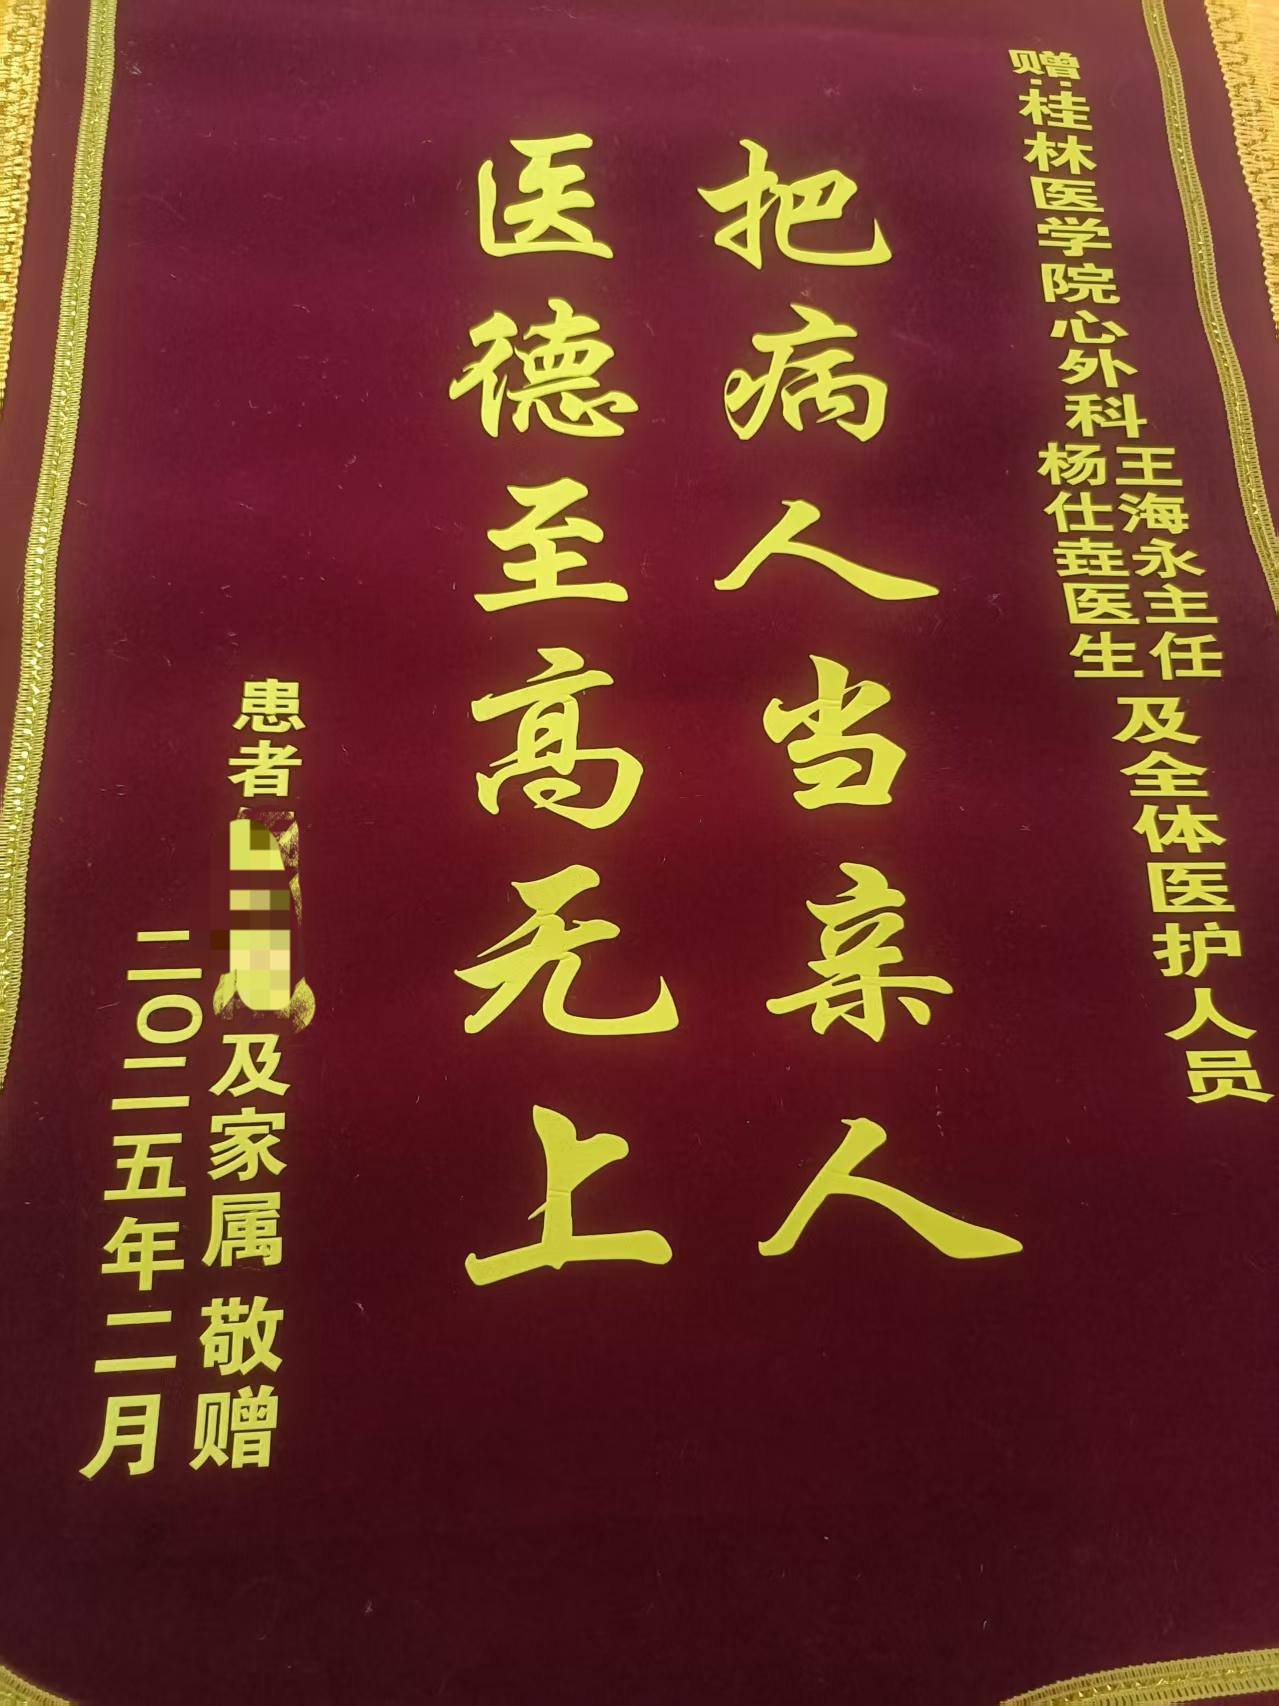 赠:桂林医学院心外科王海永主任
杨仕垚医生
及全体医护人员
把病人当亲人
医德至高无上
患者
及家属 敬赠
二〇二五年二月